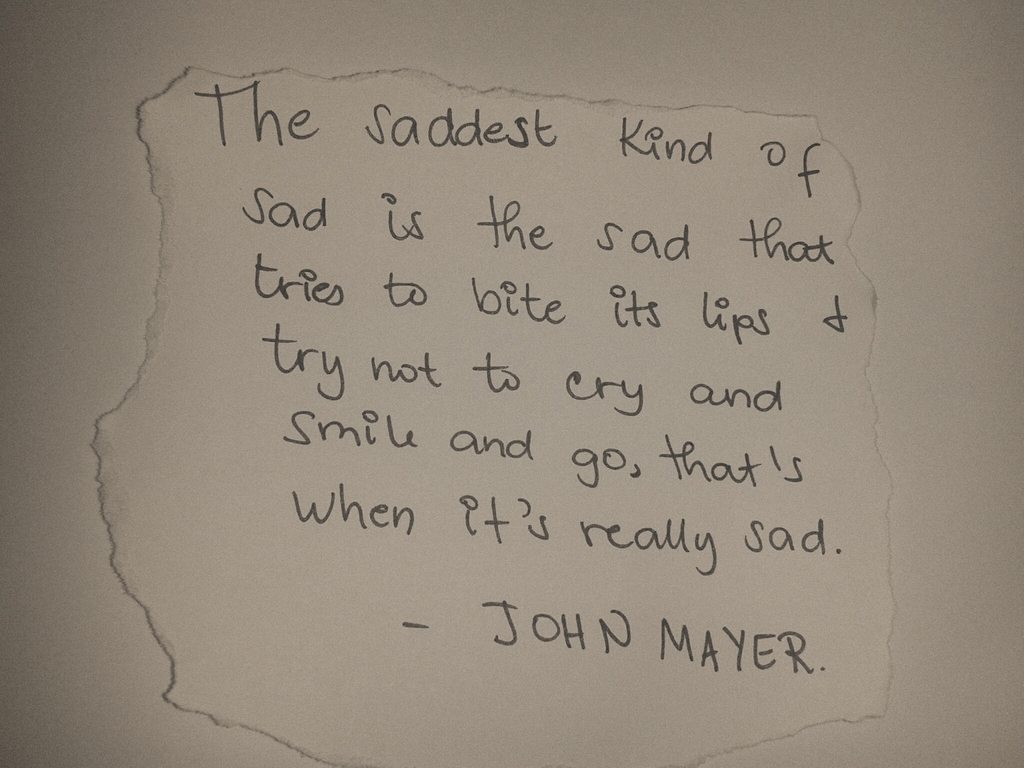 The saddest kind of
sad is the sad that
tries to bite its lips &
try not to cry and
smile and go, that's
when it's really sad.
- JOHN MAYER.